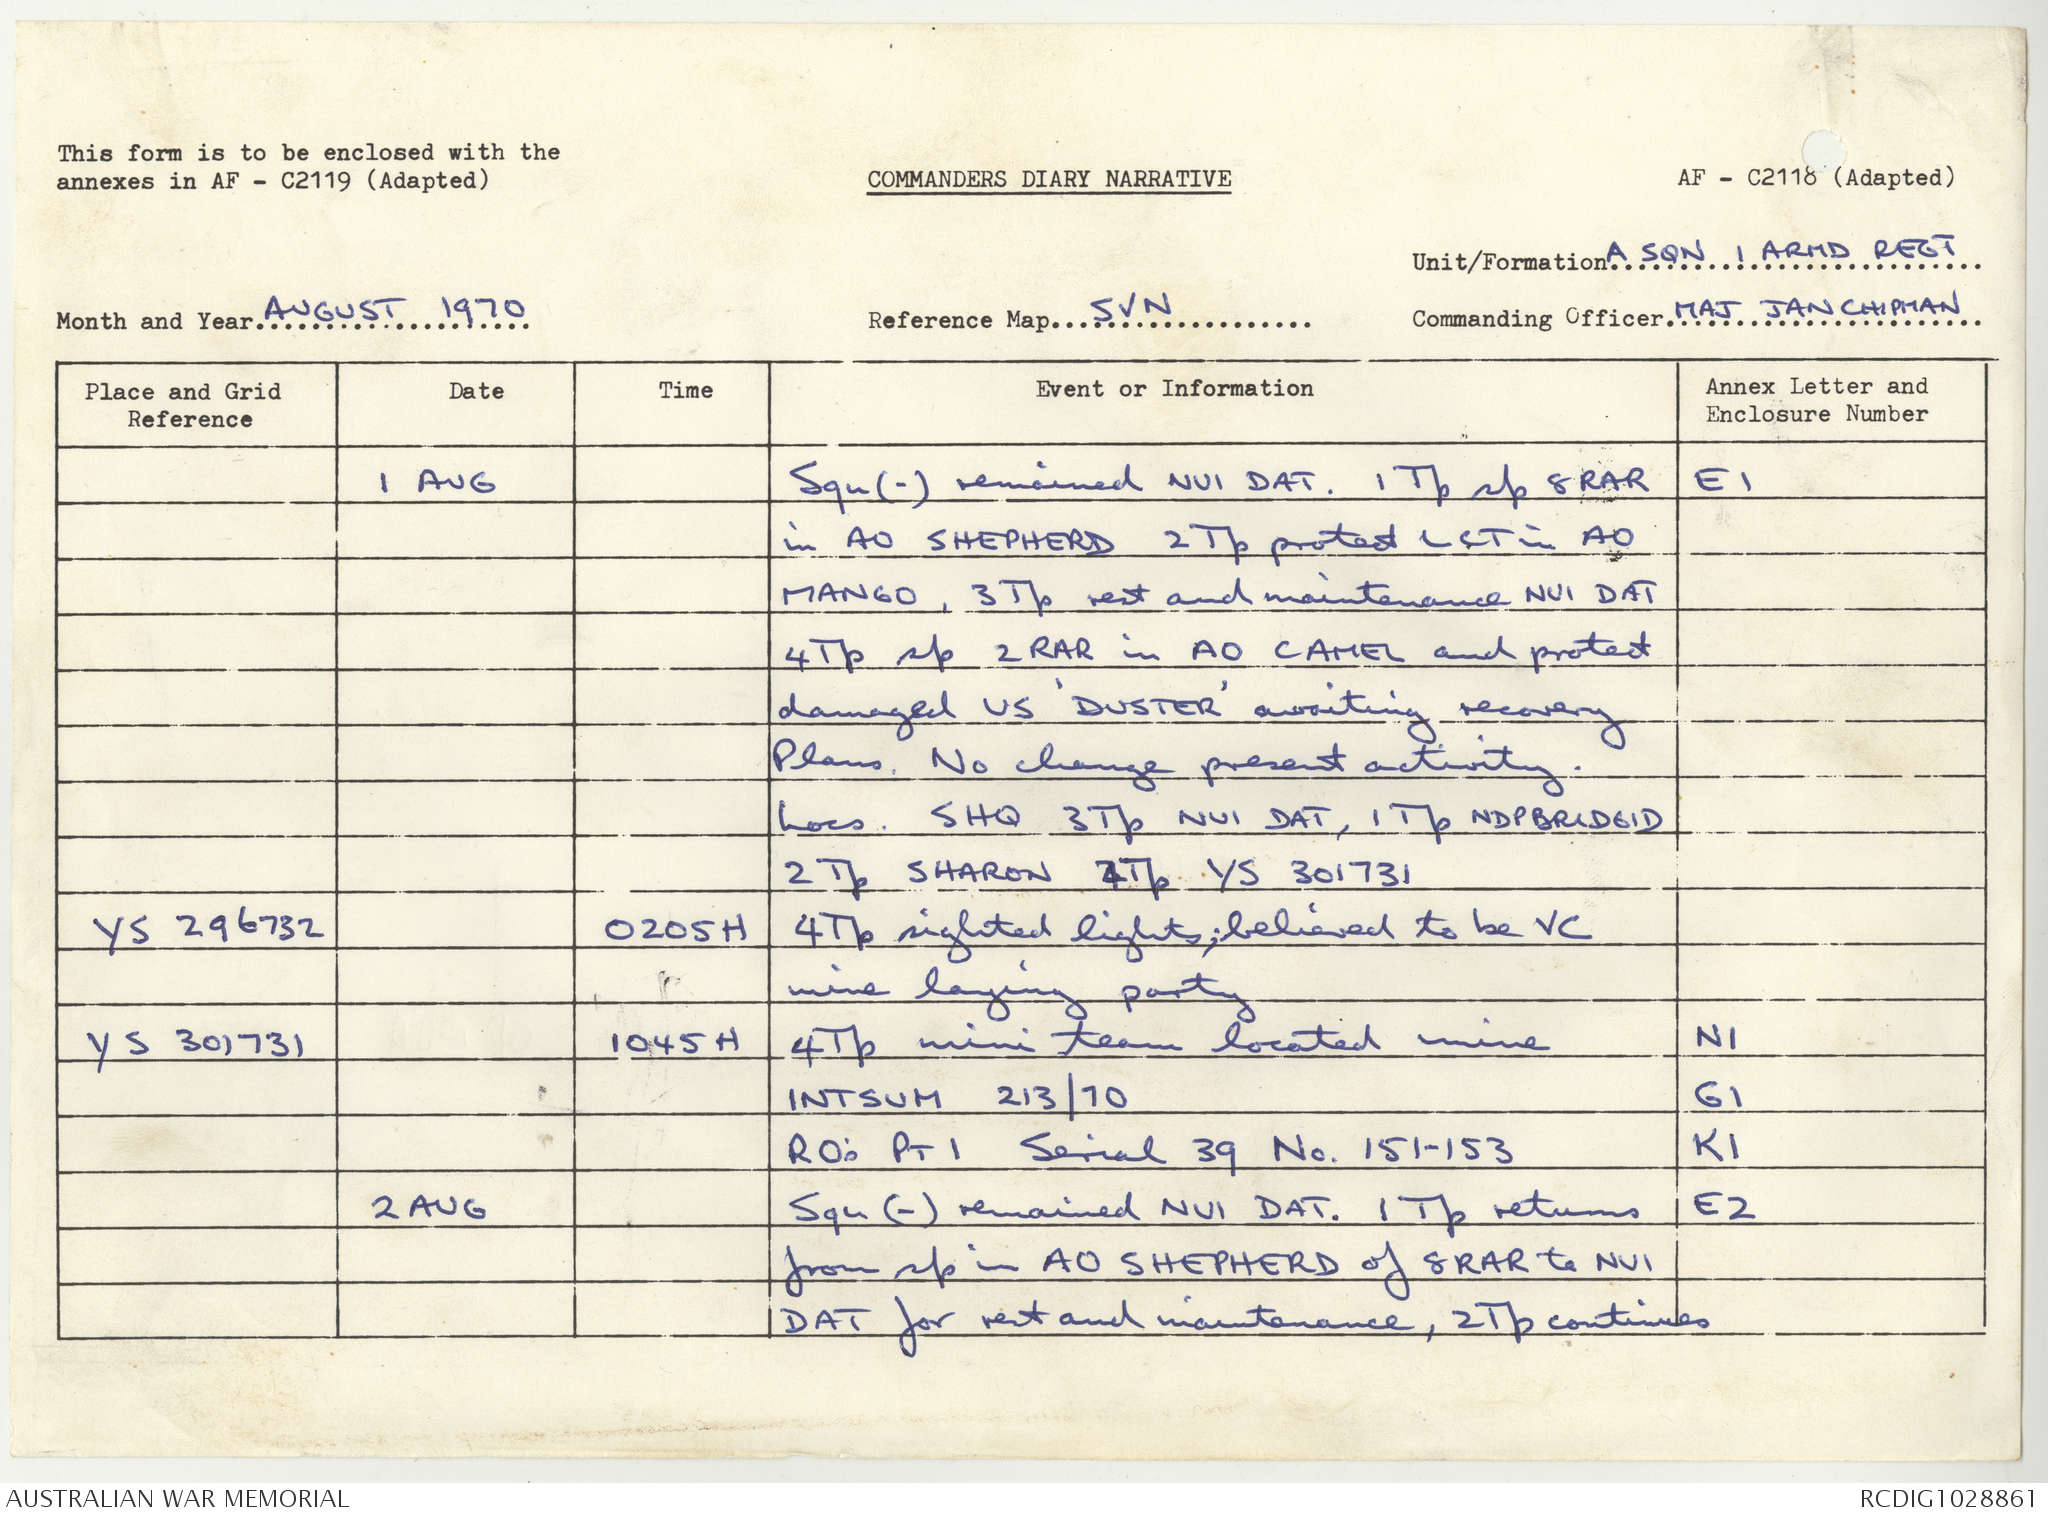 This form is to be enclosed with the
annexes in AF - C2119 (Adapted)
COMMANDERS DIARY NARRATIVE
AF - C2118 (Adapted)
Unit/Formation A SQN 1 ARMD REGT
Month and Year AUGUST 1970
Reference Map SVN
Commanding Officer MAJ JAN CHIPMAN
Place and Grid Reference Date Time Event or Information Annex Letter and Enclosure Number
1 AUG Sqn (-) remained NUI DAT. 1 Tp s/p 8RAR E1
in AO SHEPHERD 2Tp protect LST in AO
MANGO, 3Tp rest and maintenance NUI DAT
4Tp s/p 2RAR in AO CAMEL and protect
damaged US 'DUSTER' awaiting recovery
Plans. No change present activity.
Locs. SHQ 3Tp NUI DAT, 1Tp NDP BRIDGID
2Tp SHARON 4Tp YS 301731
YS 296732 0205H 4Tp sighted lights; believed to be VC
mine laying party
YS 301731 1045H 4Tp mini team located mine N1
INTSUM 213/70 G1
RO's PT 1 Serial 39 No. 151-153 K1
2 AUG Sqn (-) remained NUI DAT. 1 Tp returns E2
from s/p in AO SHEPHERD of 8RAR to NUI
DAT for rest and maintenance, 2Tp continues
AUSTRALIAN WAR MEMORIAL
RCDIG1028861